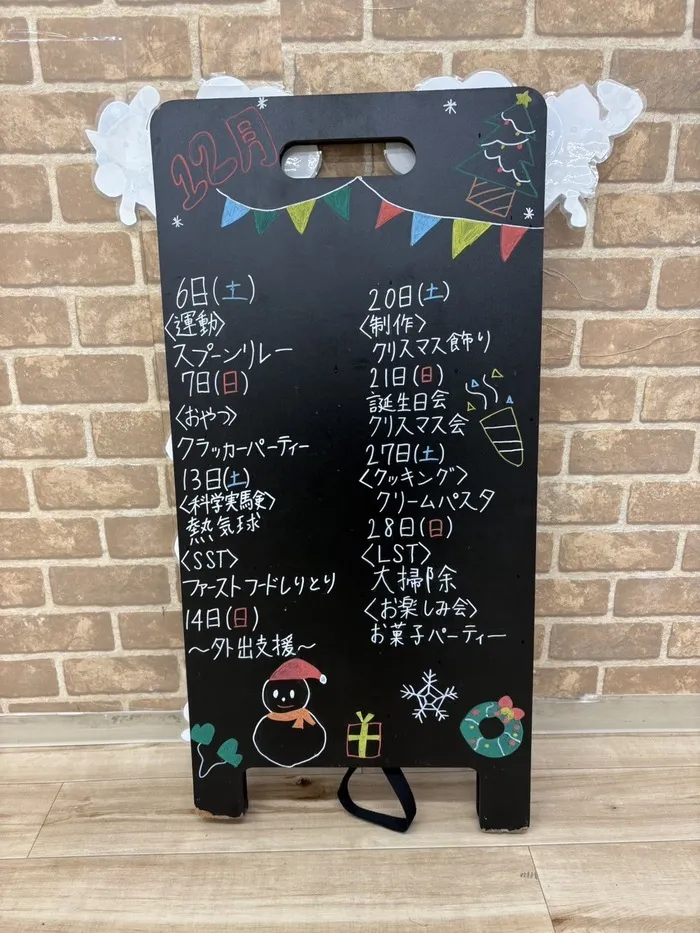 12月
6日(土)
〈運動〉
スプーンリレー
7日(日)
〈おやつ〉
クラッカーパーティー
13日(土)
〈科学実験〉
熱気球
〈SST〉
ファーストフードしりとり
14日(日)
～外出支援～
20日(土)
〈制作〉
クリスマス飾り
21日(日)
誕生日会
クリスマス会
27日(土)
〈クッキング〉
クリームパスタ
28日(日)
〈LST〉
大掃除
〈お楽しみ会〉
お菓子パーティー